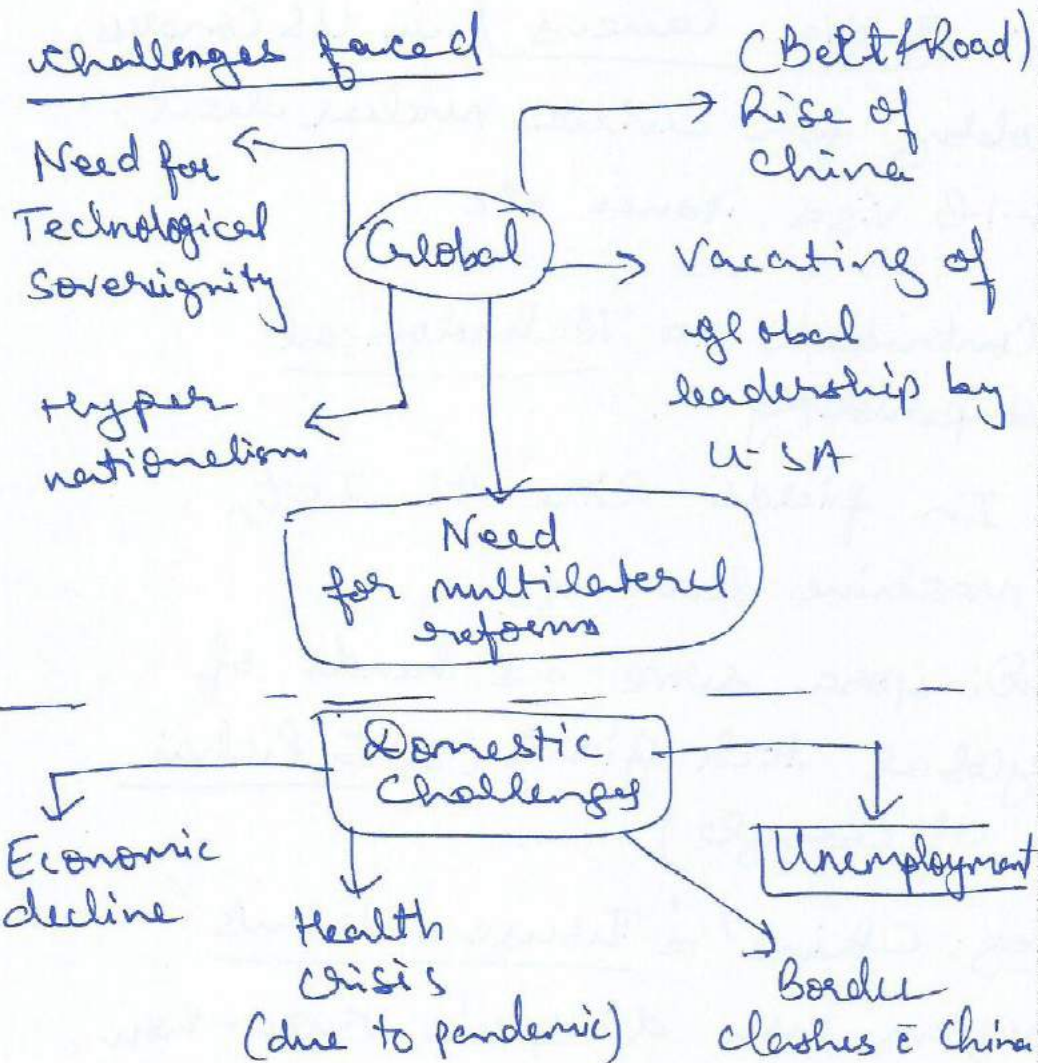 Challenges faced
(Belt & Road)
Rise of
China
Need for
Technological
Soverignity
Global
Vacating of
global
leadership by
USA
Hyper
nationalism
Need
for multilateral
reforms
Domestic
Challenges
Economic
decline
Health
Crisis
(due to pandemic)
Unemployment
Border
clashes c̄ China